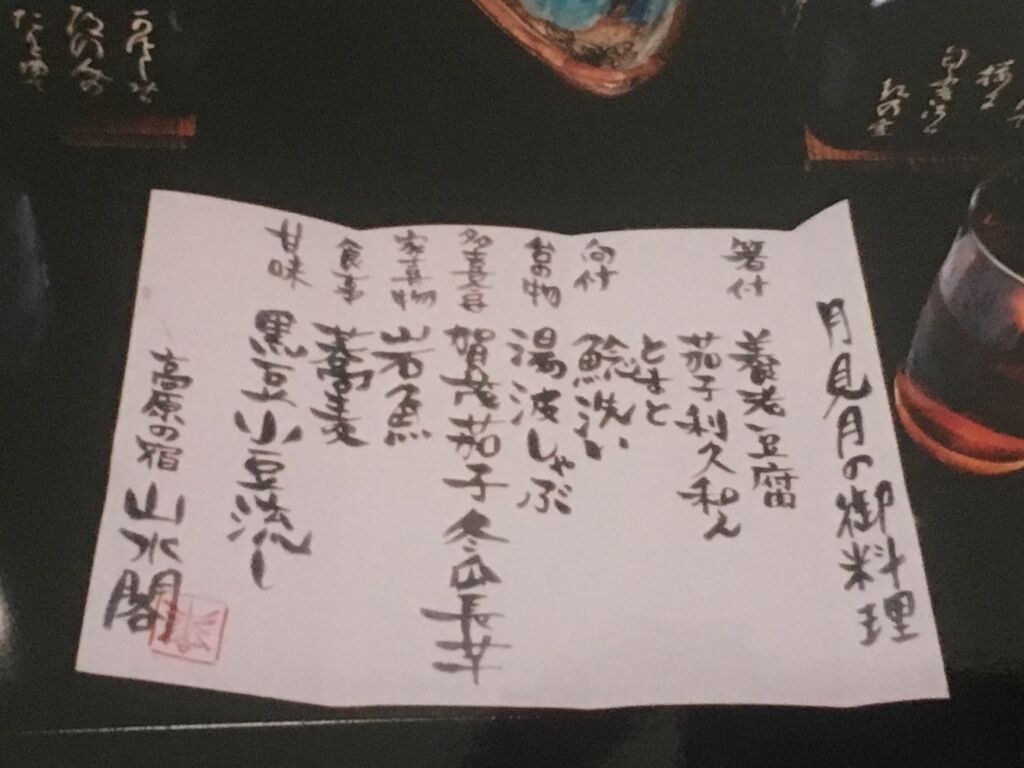 月見月の御料理
箸付
養老豆腐
茄子利久和え
ときと
向付
鯰洗い
台の物
湯波しゃぶ
多喜合
賀茂茄子冬瓜長芋
家喜物
岩魚
食事
蕎麦
甘味
黒豆小豆流し
高原の宿
山水閣